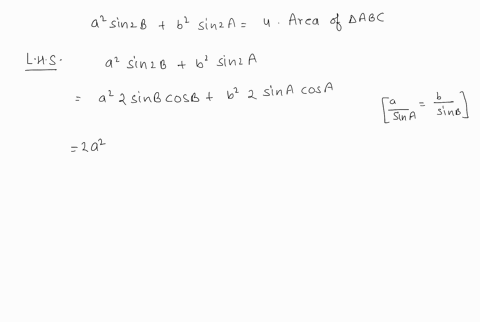 a² sin2B + b² sin2A = 4. Area of ΔABC
L.H.S. a² sin2B + b² sin2A
= a² 2 sinB cosB + b² 2 sinA cosA
[a/sinA = b/sinB]
= 2a²